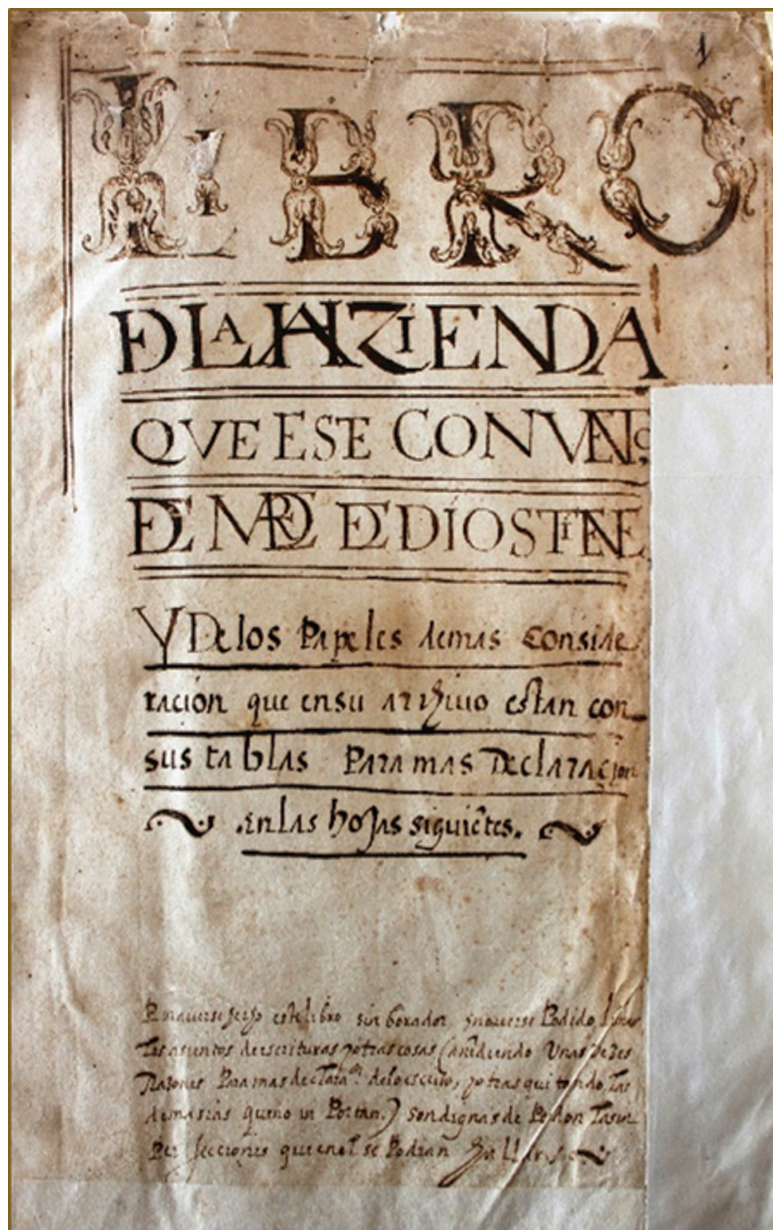 1
LIBRO
DE LA HAZIENDA
QVE ESE CONVENTO
DE MADRE DE DÍOS TIENE
Y De los Papeles demas conside
racion que ensu archivo estan con
sus tablas Para mas Declaracion
.en las hojas siguiētes.
Por averse hecho este libro sin borador y no averse Podido
los asientos de escrituras y otras cosas (añidiendo Unas veces
Razones Para mas declaraon. delo escrito, y otras quitando las
demasias que no im Portan.) son dignas de Perdon las im
Per fecciones que en el se Podran ha LLar.